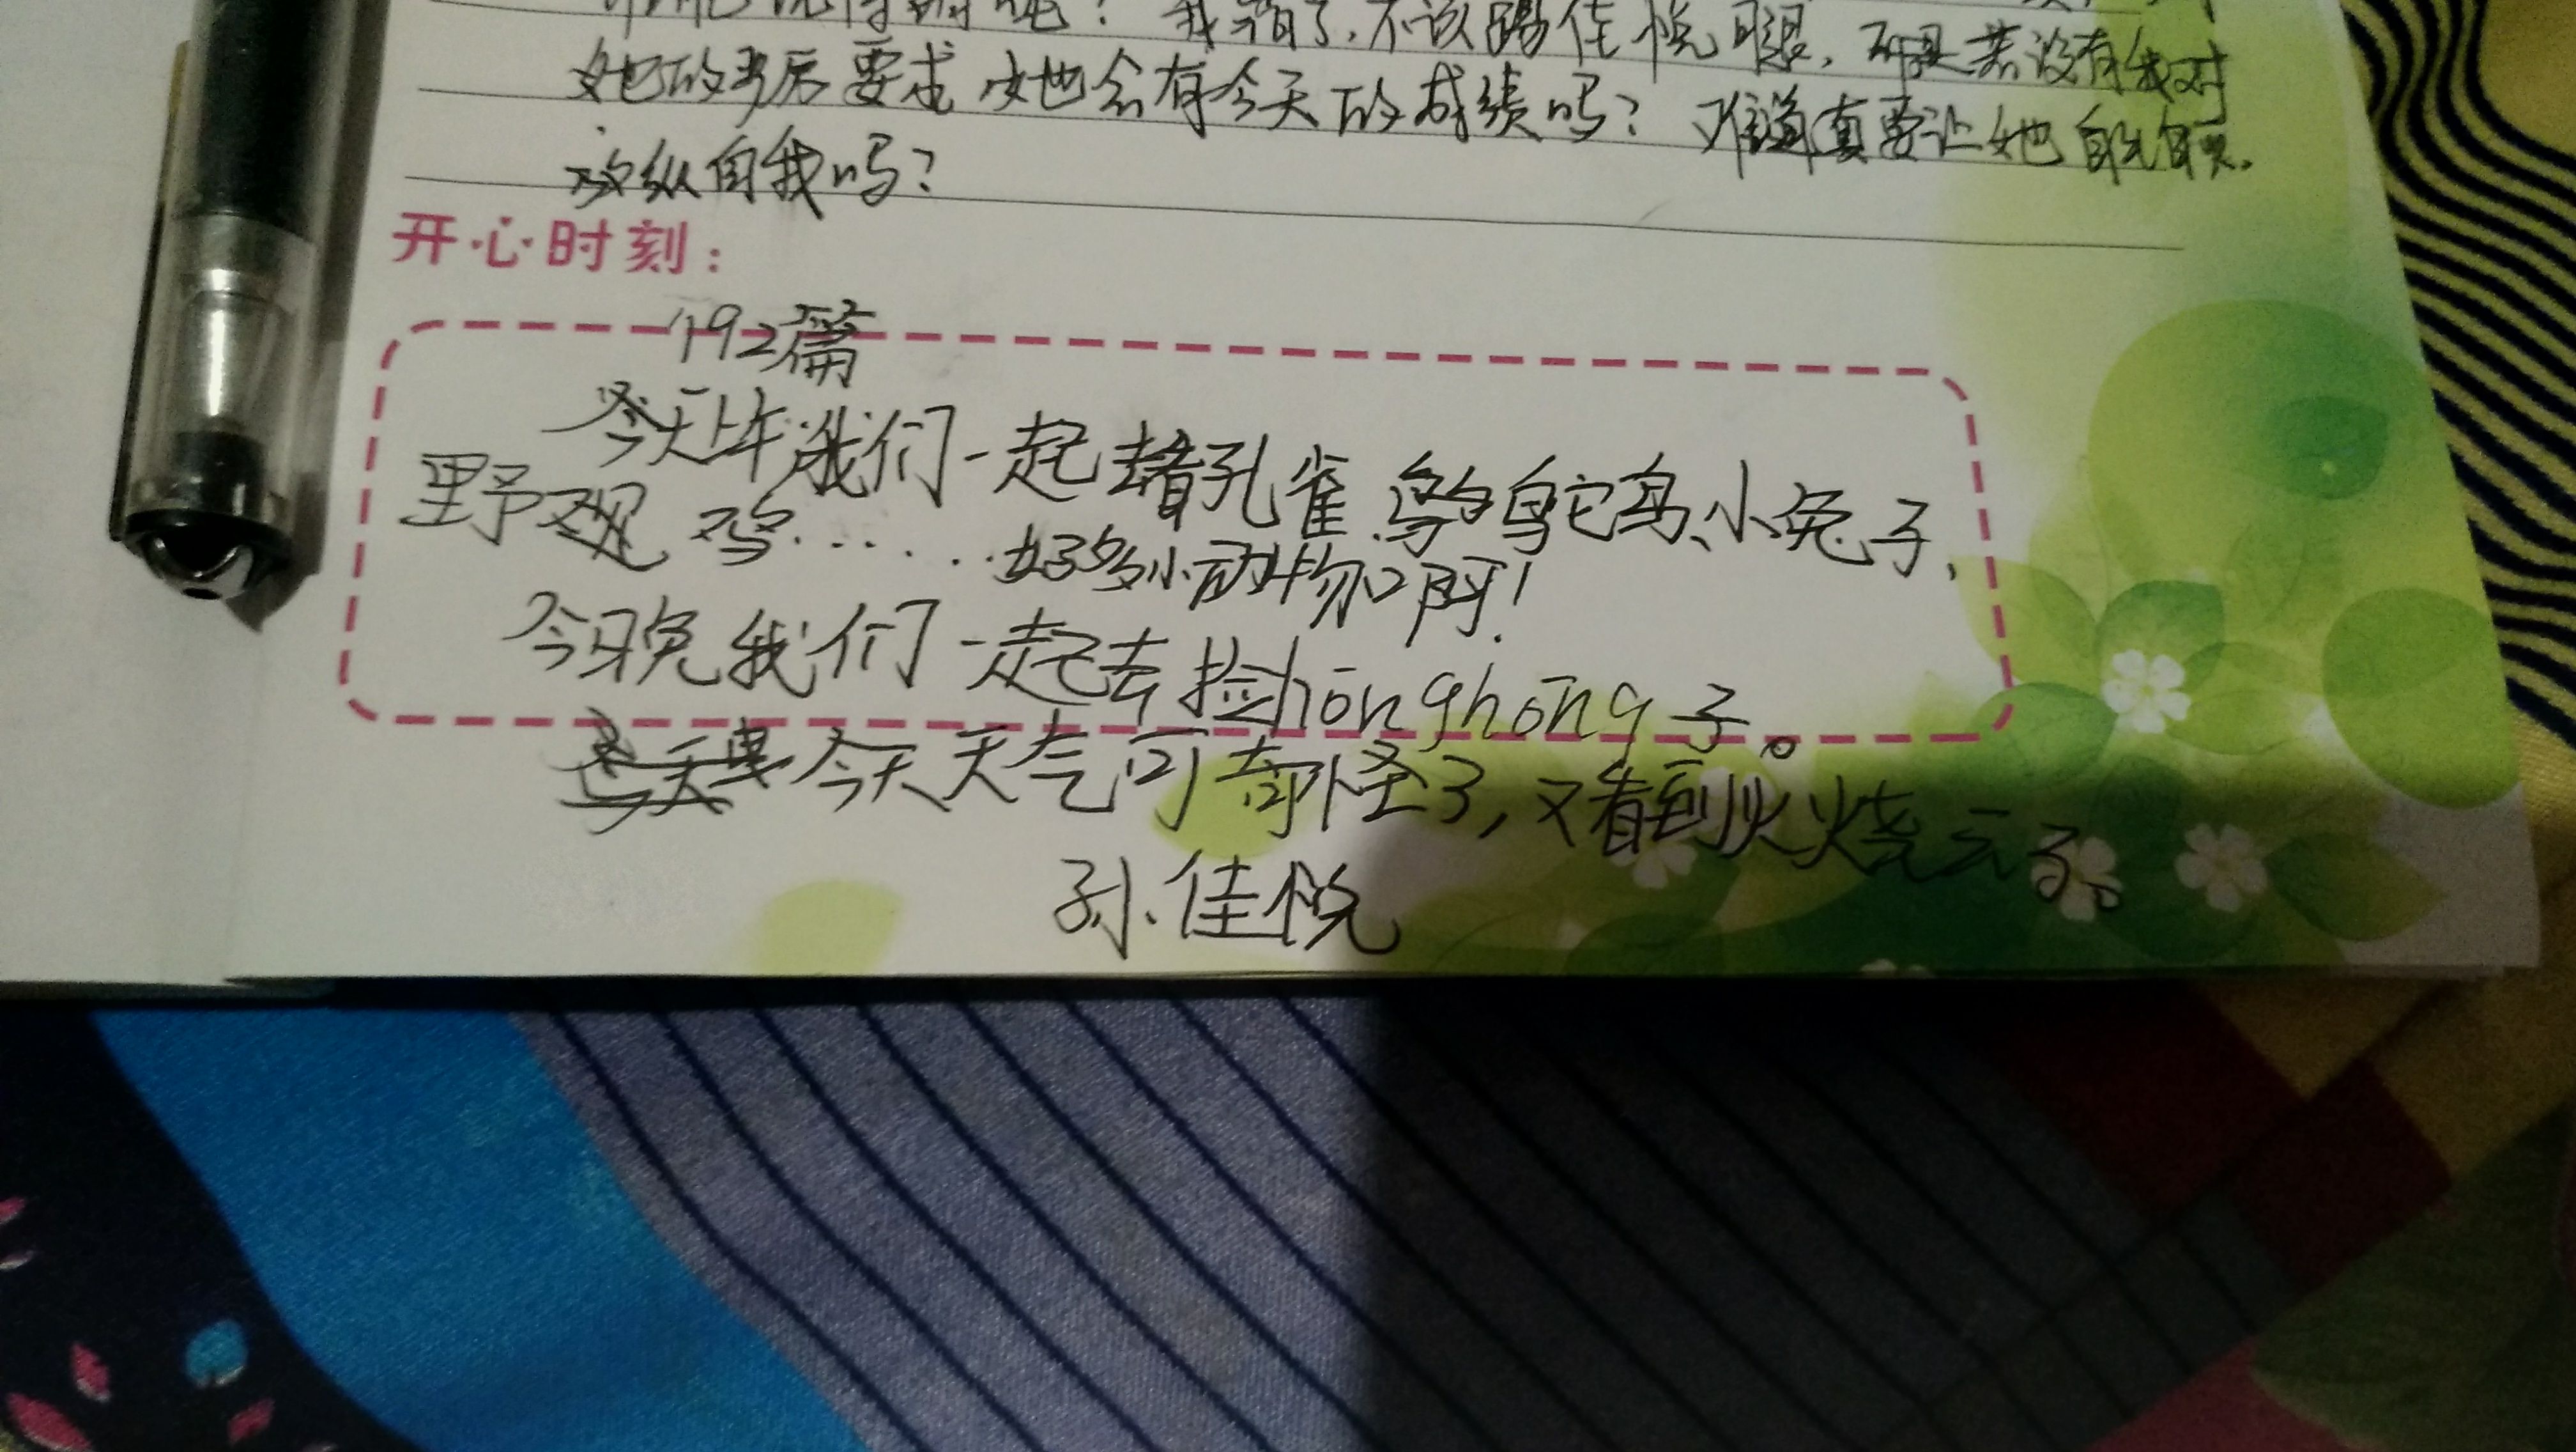 我错了，不该踢佳悦腿，可是若没有我对
她的严厉要求 她会有今天的成绩吗？难道真要让她自
放纵自我吗？
开心时刻：
192篇
今天上午我们一起去看孔雀、鸵鸟、小兔子、
野鸡......好多小动物啊！
今晚我们一起去捡hōnghōng子。
今天天气可奇怪了，又看到火烧云了。
孙佳悦